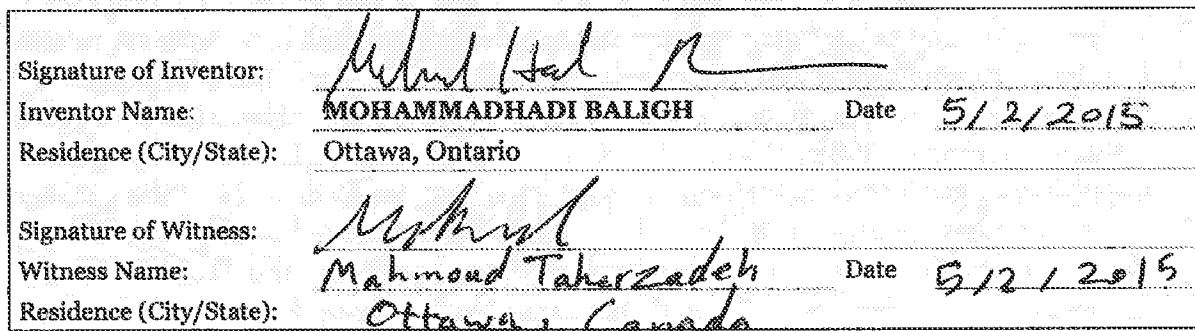 Signature of Inventor:
Inventor Name: MOHAMMADHADI BALIGH Date 5/2/2015
Residence (City/State): Ottawa, Ontario
Signature of Witness:
Witness Name: Mahmoud Taherzadeh Date 5/2/2015
Residence (City/State): Ottawa, Canada